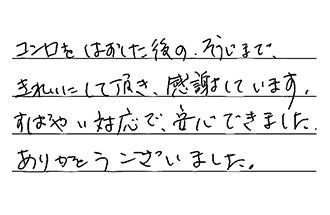 コンロをはずした後の、そうじまで、
きれいにして頂き、感謝しています。
すばやい対応で、安心できました。
ありがとうございました。